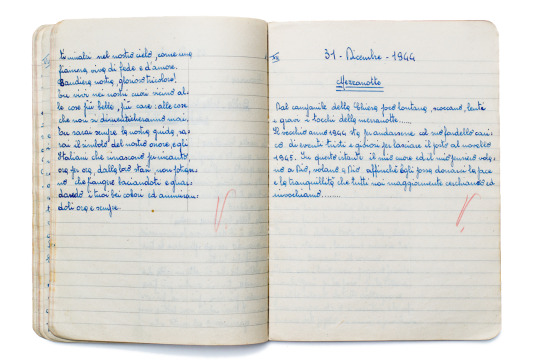 nel nostro cielo, come una
fiamma viva di fede e d'amore.
Bandiera nostra, glorioso tricolore!
tu vivi nei nostri cuori vicino al-
le cose più belle, più care, alle cose
che non si dimenticheranno mai,
tu sarai sempre la nostra guida, sa-
rai il simbolo del nostro onore, e gli
Italiani che
ora per ora, dalla loro non potran-
no che piangere baciandoti e guar-
dando i tuoi bei colori ed ammiran-
doti ora e sempre.
31 - Dicembre - 1944
Mezzanotte
Dal campanile della Chiesa più lontana, scoccano, lenti
e gravi i tocchi della mezzanotte....
Il vecchio anno 1944 sta andandosene col suo fardello cari-
co di eventi tristi e gioiosi per lasciare il posto al novello
1945. In questo istante il mio cuore ed il mio pensiero vola-
no a Dio, volano a Dio affinchè Egli possa donarci la pace
e la tranquillità che tutti noi maggiormente ed
invochiamo.......